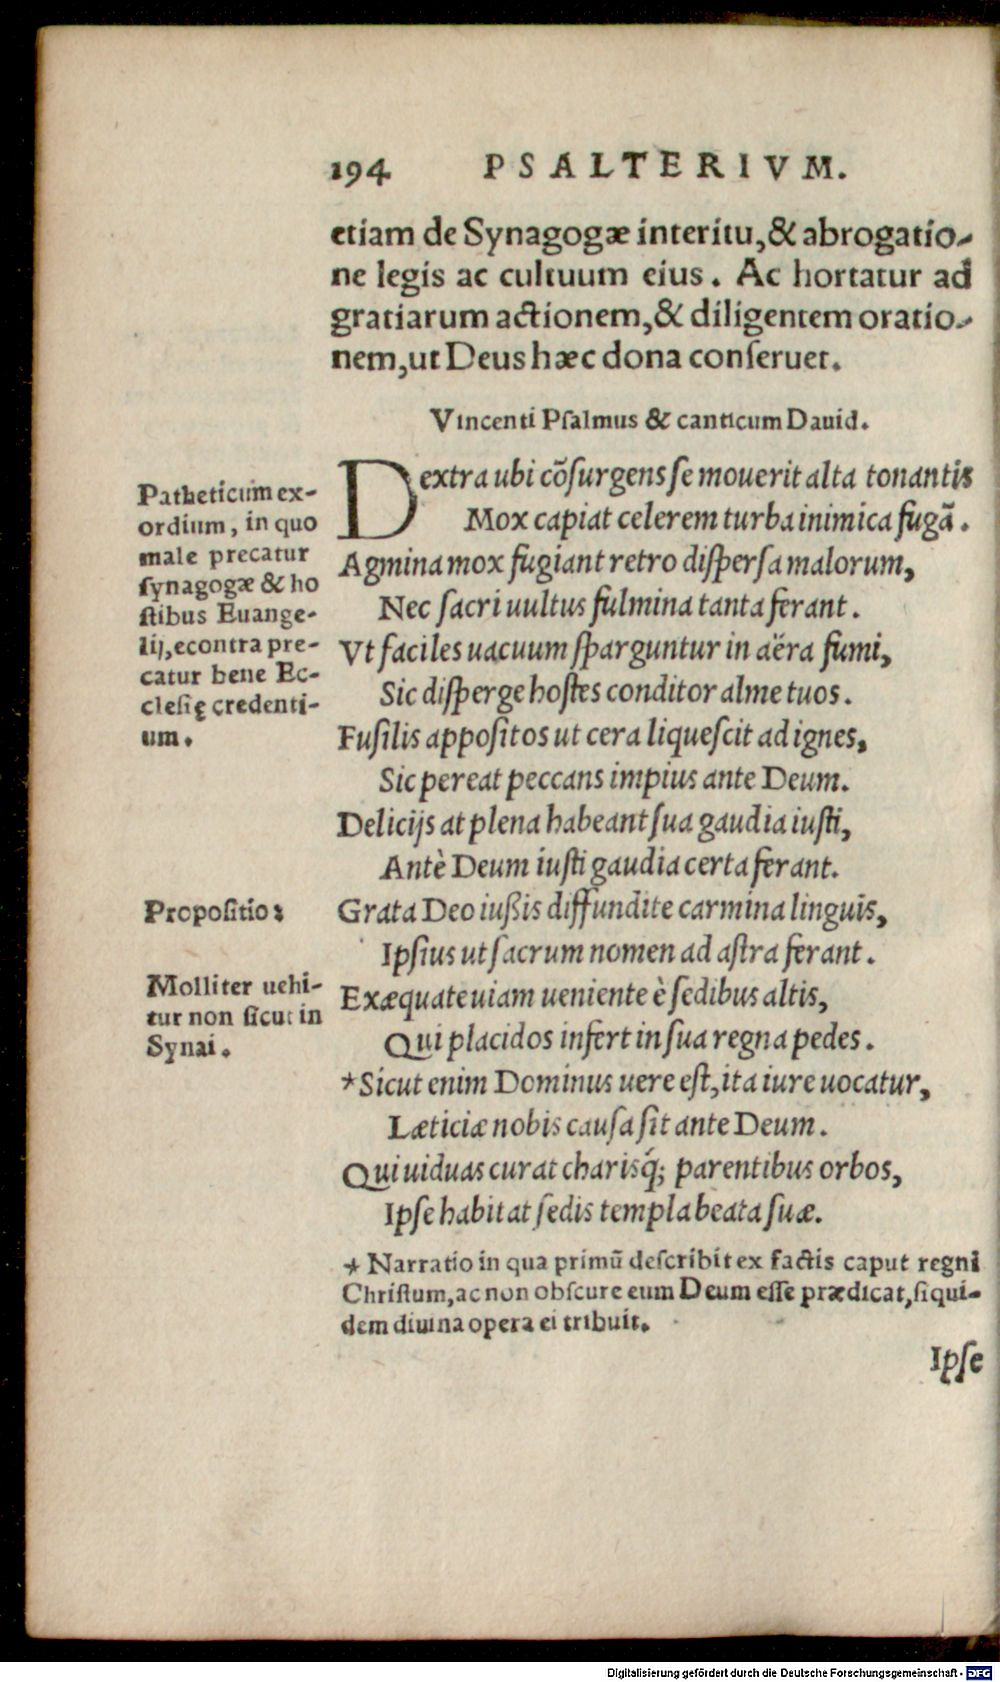 194 PSALTERIVM.
etiam de Synagogæ interitu, & abrogatio-
ne legis ac cultuum eius. Ac hortatur ad
gratiarum actionem, & diligentem oratio-
nem, ut Deus hæc dona conſeruet.
Vincenti Pſalmus & canticum Dauid.
Dextra ubi cõſurgens ſe mouerit alta tonantis
Mox capiat celerem turba inimica fugã.
Agmina mox fugiant retro diſperſa malorum,
Nec ſacri uultus fulmina tanta ferant.
Vt faciles uacuum ſparguntur in aëra fumi,
Sic diſperge hoſtes conditor alme tuos.
Fuſilis appoſitos ut cera liqueſcit ad ignes,
Sic pereat peccans impius ante Deum.
Delicijs at plena habeant ſua gaudia iuſti,
Antè Deum iuſti gaudia certa ferant.
Grata Deo iuſsis diffundite carmina linguis,
Ipſius ut ſacrum nomen ad aſtra ferant.
Exæquate uiam ueniente è ſedibus altis,
Qui placidos infert in ſua regna pedes.
*Sicut enim Dominus uere eſt, ita iure uocatur,
Læticiæ nobis cauſa ſit ante Deum.
Qui uiduas curat charisq́; parentibus orbos,
Ipſe habitat ſedis templa beata ſuæ.
Patheticum ex-
ordium, in quo
male precatur
ſynagogæ & ho
ſtibus Euange-
lij, econtra pre-
catur bene Ec-
cleſię credenti-
um.
Propoſitio:
Molliter uehi-
tur non ſicut in
Synai.
* Narratio in qua primũ deſcribit ex factis caput regni
Chriſtum, ac non obſcure eum Deum eſſe prædicat, ſiqui-
dem diuina opera ei tribuit.
Ipſe
Digitalisierung gefördert durch die Deutsche Forschungsgemeinschaft - DFG